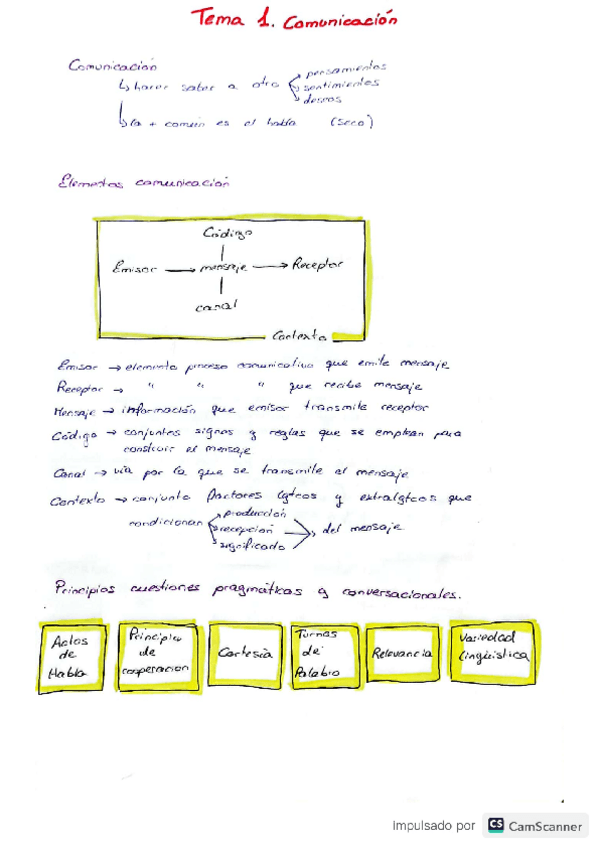 Tema 1. Comunicación
Comunicación
↳ hacer saber a otro
pensamientos
sentimientos
deseos
↳ la + común es el habla (Seco)
Elementos comunicación
Código
Emisor → mensaje → Receptor
canal
Contexto
Emisor → elemento proceso comunicativo que emite mensaje
Receptor → " " " que recibe mensaje
Mensaje → información que emisor transmite receptor
Código → conjuntos signos y reglas que se emplean para
construir el mensaje
Canal → vía por la que se transmite el mensaje
Contexto → conjunto factores lgtcos y extralgtcos que
condicionan
producción
recepción
significado
del mensaje
Principios cuestiones pragmáticas y conversacionales.
Actos
de
Habla
Principio
de
cooperacion
Cortesía
Turnos
de
Palabra
Relevancia
Variedad
Lingüística
Impulsado por CS CamScanner